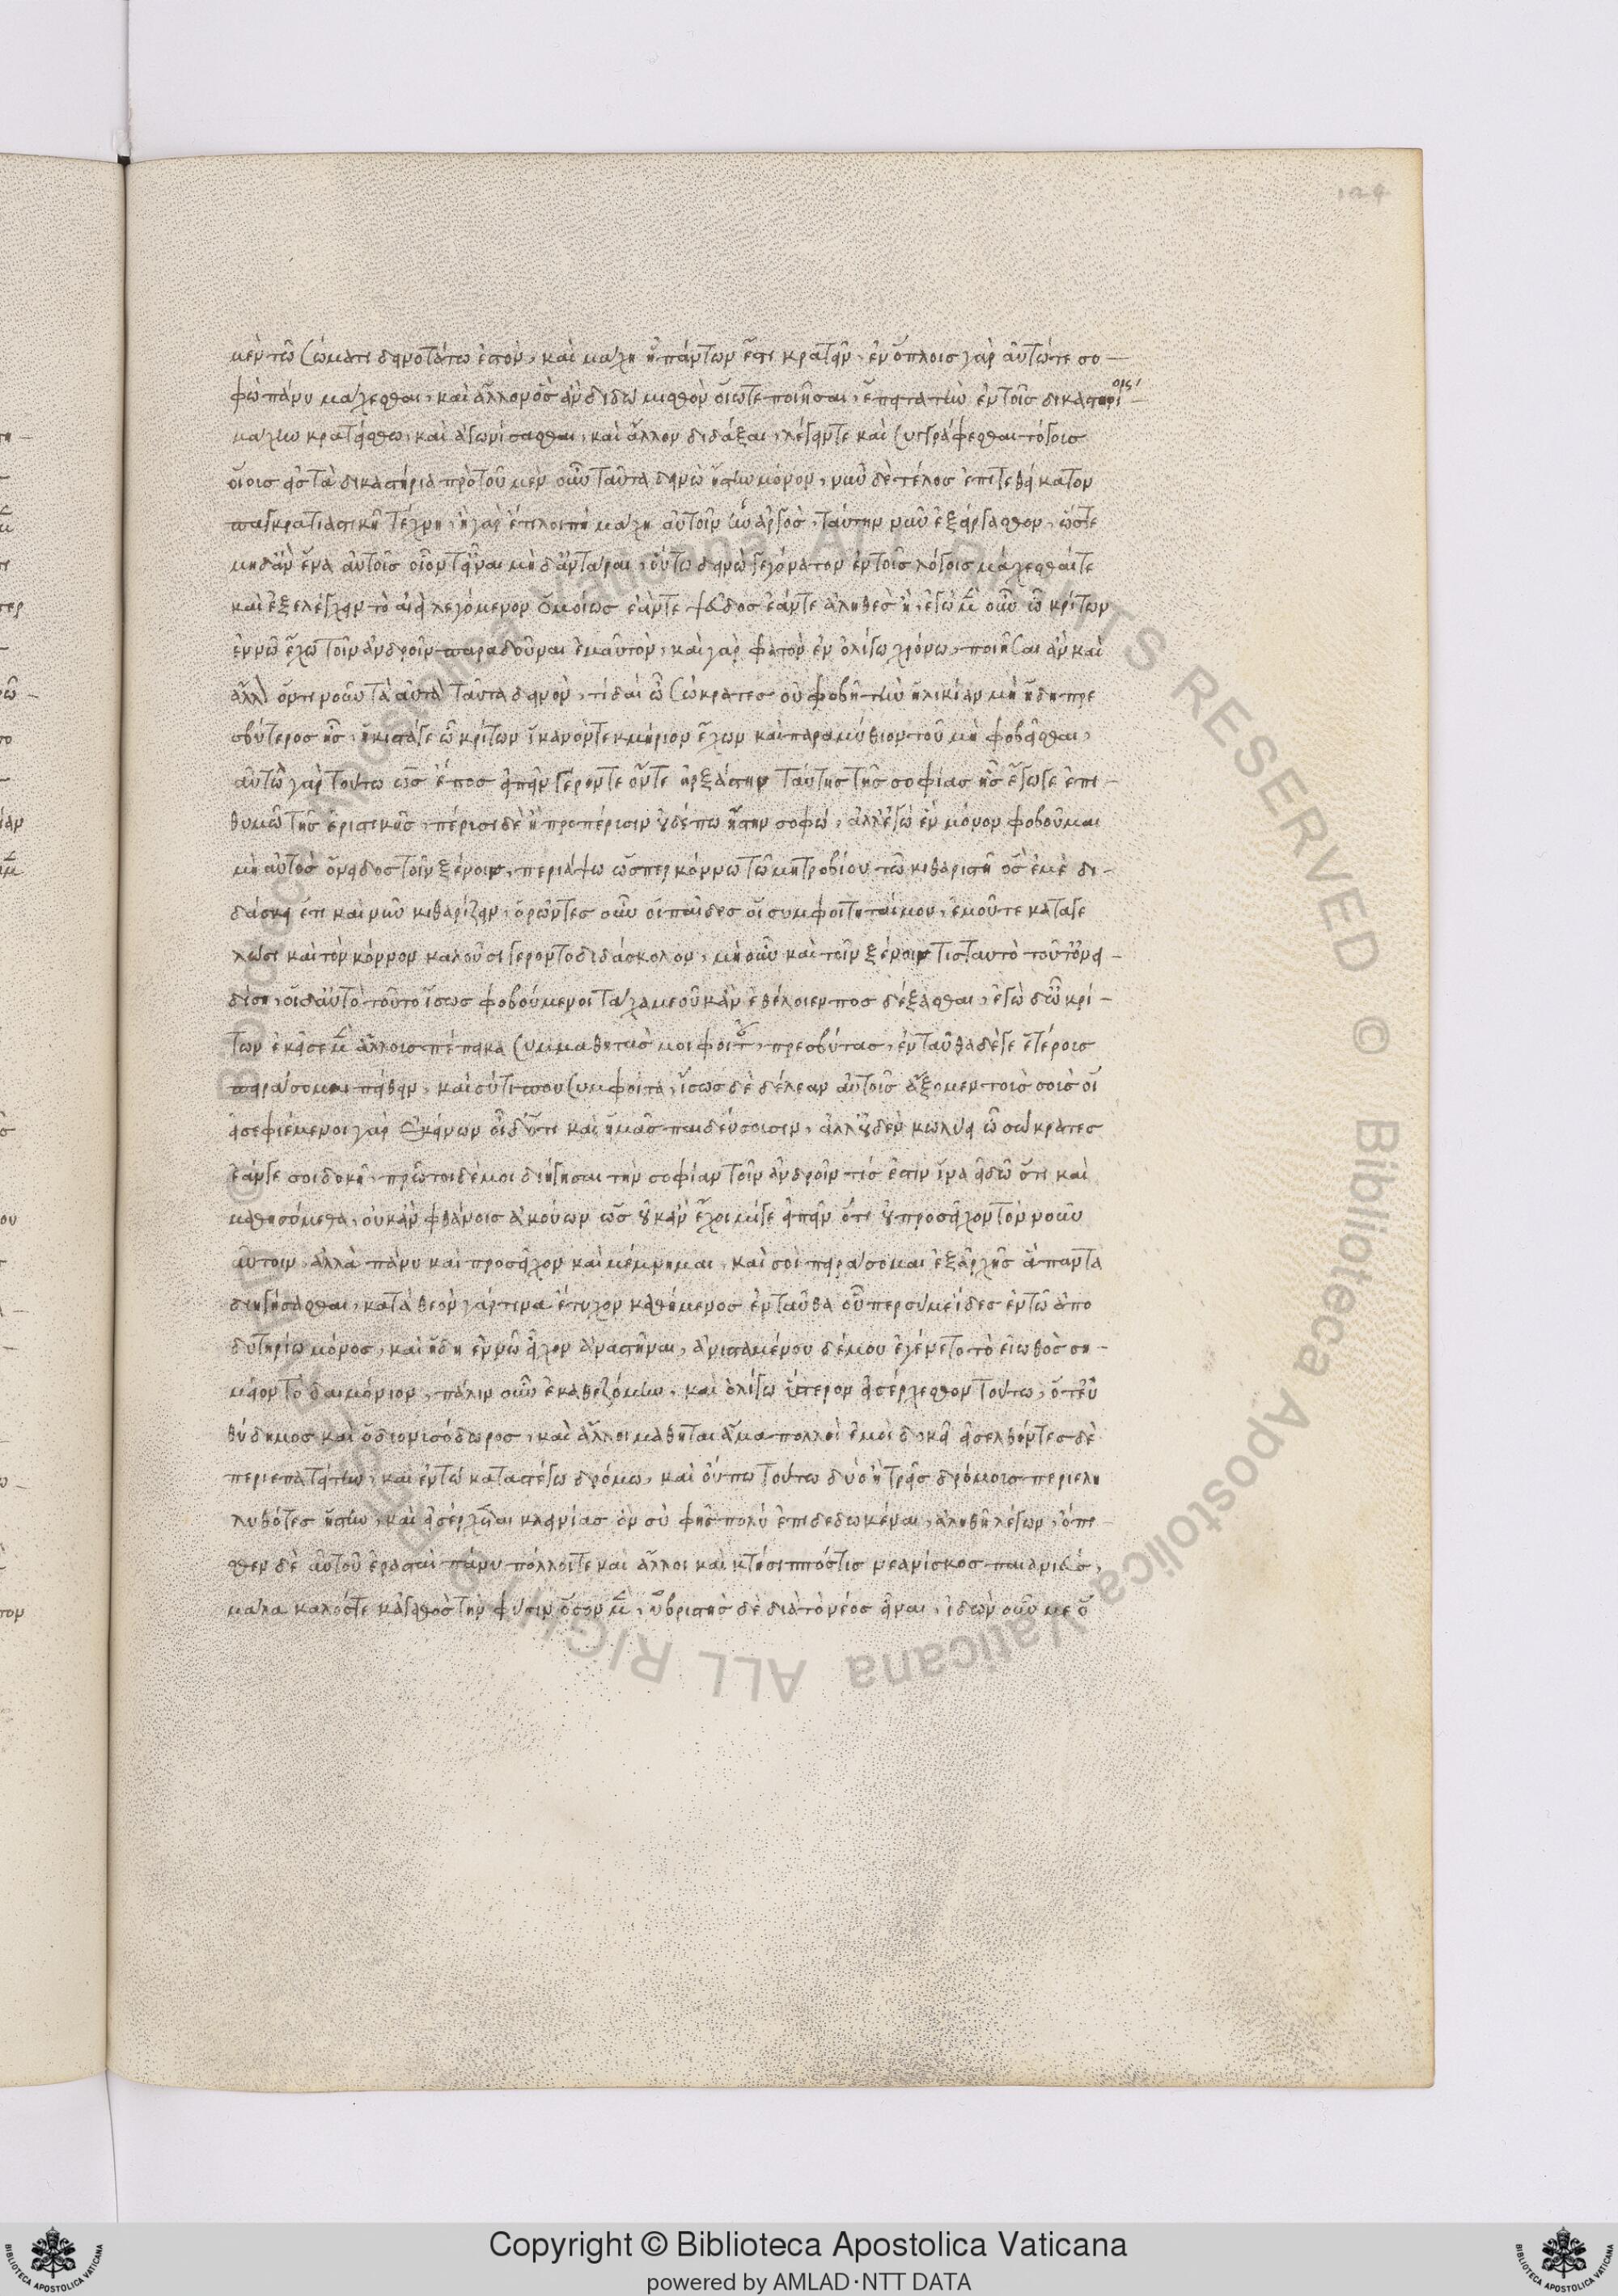 124
μὲν τῶ σώματι δεινοτάτω ἐστὸν, καὶ μάχη ἧ πάντων ἔστι κρατεῖν· ἐν ὅπλοις γὰρ αὐτώ τε σο-
φὼ πάνυ μάχεσθαι, καὶ ἄλλον ὃς ἂν διδῶ μισθὸν οἵω τε ποιῆσαι, ἔπειτα τὴν ἐν τοῖς δικαστηρίοις
μάχην κρατίστω, καὶ ἀγωνίσασθαι, καὶ ἄλλον διδάξαι, λέγειν τε καὶ συγγράφεσθαι λόγους
οἵους εἰς τὰ δικαστήρια πρὸ τοῦ μὲν οὖν ταῦτα δεινὼ ἤστην μόνον, νῦν δὲ τέλος ἐπιτεθείκατον
παγκρατιαστικῆ τέχνη, ἡ γὰρ ἔτι λοιπὴ μάχη αὐτοῖν ἦν ἀργὸς, ταύτην νῦν ἐξείργασθον, ὥστε
μηδ' ἂν ἕνα αὐτοῖς οἷόν τ' εἶναι μηδ' ἀντᾶραι, οὕτω δεινὼ γεγόνατον ἐν τοῖς λόγοις μάχεσθαί τε
καὶ ἐξελέγχειν τὸ ἀεὶ λεγόμενον ὁμοίως ἐάν τε ψεῦδος ἐάν τε ἀληθὲς ἦ, ἐγὼ μὲν οὖν ὦ κρίτων
ἐν νῶ ἔχω τοῖν ἀνδροῖν παραδοῦναι ἐμαυτὸν, καὶ γάρ φατον ἐν ὀλίγω χρόνω, ποιῆσαι ἂν καὶ
ἄλλον ὁντινοῦν τὰ αὐτὰ ταῦτα δεινὸν, τί δαὶ ὦ σώκρατες οὐ φοβῆ τὴν ἡλικίαν μὴ ἤδη πρε
σβύτερος ἦς, ἥκιστά γε ὦ κρίτων ἱκανόν τεκμήριον ἔχων καὶ παραμύθιον τοῦ μὴ φοβεῖσθαι,
αὐτὼ γὰρ τούτω ὡς ἔπος εἰπεῖν γέροντε ὄντε ἠρξάσθην ταύτης τῆς σοφίας ἧς ἔγωγε ἐπι-
θυμῶ τῆς ἐριστικῆς, πέρισι δὲ ἢ προπέρισιν οὐδέπω ἤστην σοφώ, ἀλλ' ἐγὼ ἓν μόνον φοβοῦμαι
μὴ αὐτὸς ὄνειδος τοῖν ξένοιν περιάψω ὥσπερ κόννω τῶ μητροβίου τῶ κιθαριστῆ ὃς ἐμὲ δι-
δάσκει ἔτι καὶ νῦν κιθαρίζειν, ὁρῶντες οὖν οἱ παῖδες οἱ συμφοιτηταί μου, ἐμοῦ τε καταγε
λῶσι καὶ τὸν κόννον καλοῦσι γεροντοδιδάσκαλον, μὴ οὖν καὶ τοῖν ξένοιν τις ταυτὸ τοῦτ' ὀνει-
δίση, οἱ δ' αὐτὸ τοῦτο ἴσως φοβούμενοι τάχα με οὐκ ἂν ἐθέλοιεν ποσδέξασθαι, ἐγὼ δ' ὦ κρί-
των ἐκεῖσε μὲν ἄλλους πέπεικα συμμαθητάς μοι φοιτᾶν πρεσβύτας, ἐνταῦθα δέ γε ἑτέρους
πειράσομαι πείθειν, καὶ σύ τί που συμφοίτα, ἴσως δὲ δέλεαρ αὐτοῖς ἄξομεν τοὺς σοὺς υἱ
εῖς ἐφιέμενοι γὰρ ἐκείνων οἶδ' ὅτι καὶ ἡμᾶς παιδεύσουσιν, ἀλλ' οὐδὲν κωλύει ὦ σώκρατες
ἐάν γε σοι δοκῆ, πρῶτον δέ μοι διήγησαι τὴν σοφίαν τοῖν ἀνδροῖν τίς ἐστιν ἵνα εἰδῶ ὅτι καὶ
μαθησόμεθα, οὐκ ἂν φθάνοις ἀκούων ὡς οὐκ ἂν ἔχοιμί γε εἰπεῖν ὅτι οὐ προσεῖχον τὸν νοῦν
αὐτοῖν ἀλλὰ πάνυ καὶ προσεῖχον καὶ μέμνημαι, καί σοι πειράσομαι ἐξ ἀρχῆς ἅπαντα
διηγήσασθαι, κατὰ θεὸν γάρ τινα ἔτυχον καθήμενος ἐνταῦθα οὗπερ σύ με εἶδες ἐν τῶ ἀπο
δυτηρίω μόνος, καὶ ἤδη ἐν νῶ εἶχον ἀναστῆναι, ἀνισταμένου δέ μου ἐγένετο τὸ εἰωθὸς ση-
μεῖον τὸ δαιμόνιον, πάλιν οὖν ἐκαθεζόμην, καὶ ὀλίγω ὕστερον εἰσέρχεσθον τούτω, ὅ τ' εὐ
θύδημος καὶ ὁ διονυσόδωρος, καὶ ἄλλοι μαθηταὶ ἅμα πολλοὶ ἐμοὶ δοκεῖν εἰσελθόντες δὲ
περιεπατείτην, καὶ ἐν τῶ καταστέγω δρόμω, καὶ οὔπω τούτω δύο ἢ τρεῖς δρόμους περιελη
λυθότες ἤστην, καὶ εἰσέρχεται κλεινίας ὃν σὺ φὴς πολὺ ἐπιδεδωκέναι, ἀληθῆ λέγων, ὄπι-
σθεν δὲ αὐτοῦ ἐρασταὶ πάνυ πολλοί τε καὶ ἄλλοι καὶ κτήσιππός τις νεανίσκος παιανιεὺς,
μάλα καλός τε κἀγαθὸς τὴν φύσιν ὅσον μὲν, ὑβριστὴς δὲ διὰ τὸ νέος εἶναι, ἰδὼν οὖν με ὁ
Copyright © Biblioteca Apostolica Vaticana
powered by AMLAD·NTT DATA